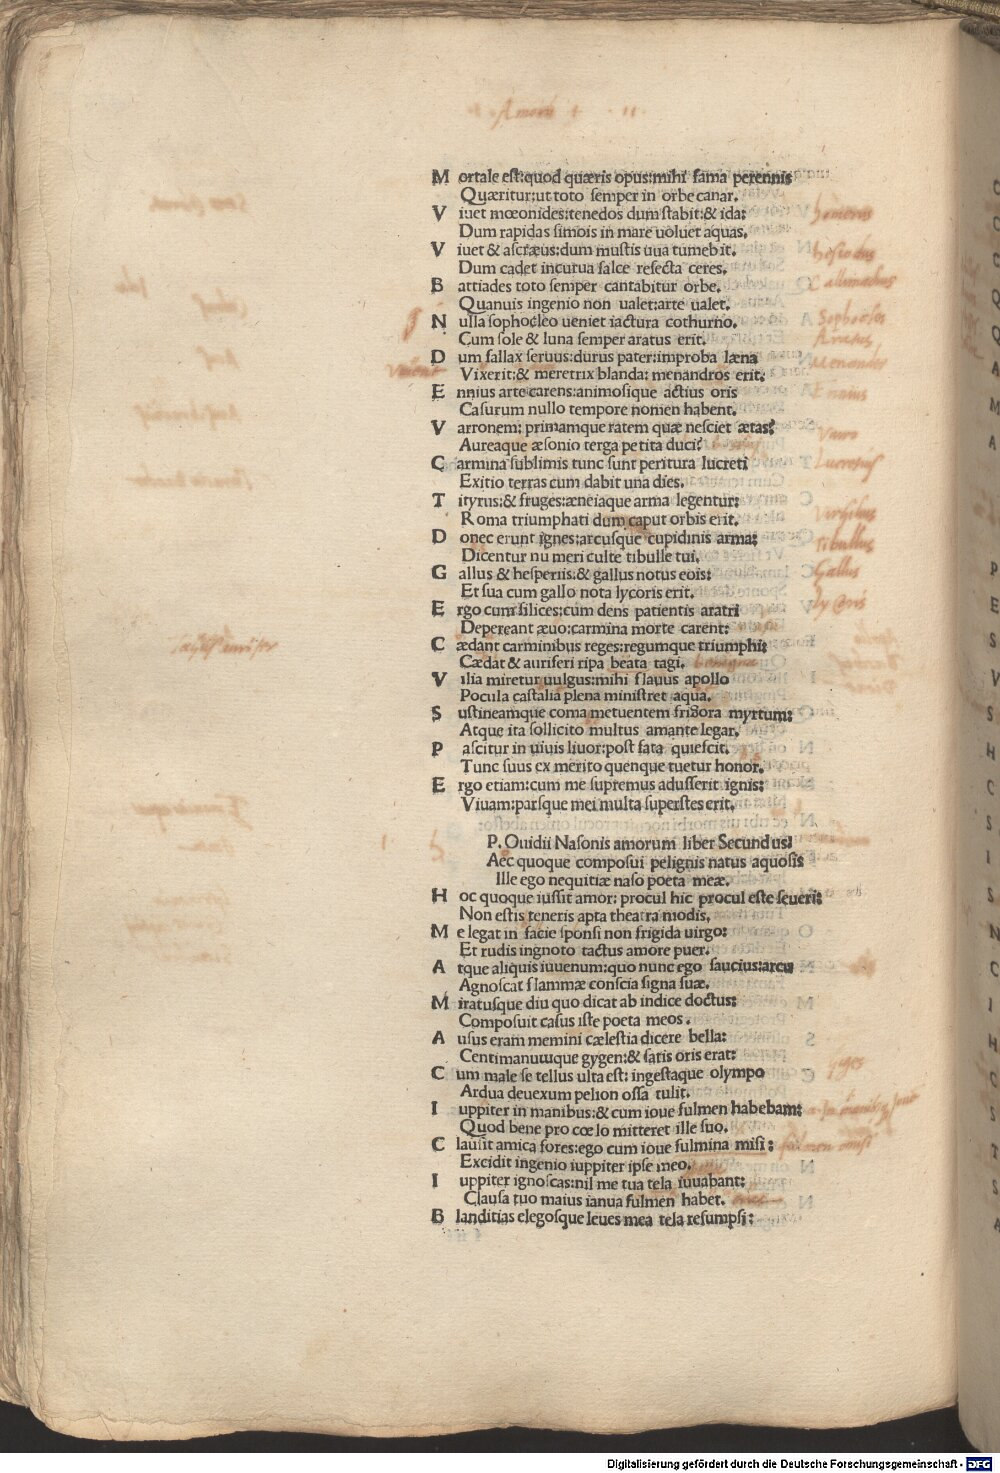 Amorū
M ortale est:quod quæris opus:mihi fama perennis
Quæritur:ut toto semper in orbe canar.
V iuet mœonides:tenedos dum stabit:& ida:
homerus
Dum rapidas simois in mare uoluet aquas.
V iuet & ascræus:dum mustis uua tumebit.
hesiodus
Dum cadet incurua falce resecta ceres.
B attiades toto semper cantabitur orbe.
Callimachus
Quanuis ingenio non ualet:arte ualet.
N ulla sophocleo ueniet iactura cothurno.
Sophocles
Cum sole & luna semper aratus erit.
Aratus
D um fallax seruus:durus pater:improba læna
Menander
Vixerit:& meretrix blanda: menandros erit.
E nnius arte carens:animosique actius oris
Ennius
Casurum nullo tempore nomen habent.
V arronem: primamque ratem quæ nesciet ætas?
Varro
Aureaque æsonio terga petita duci?
C armina sublimis tunc sunt peritura lucreti
Lucretius
Exitio terras cum dabit una dies.
T ityrus:& fruges:æneiaque arma legentur:
Virgilius
Roma triumphati dum caput orbis erit.
D onec erunt ignes:arcusque cupidinis arma:
tibullus
Dicentur nu meri culte tibulle tui.
G allus & hesperiis:& gallus notus eois:
Gallus
Et sua cum gallo nota lycoris erit.
lycoris
E rgo cum silices:cum dens patientis aratri
Depereant æuo:carmina morte carent:
C ædant carminibus reges:regumque triumphi:
Cædat & auriferi ripa beata tagi.
V ilia miretur uulgus:mihi flauus apollo
Pocula castalia plena ministret aqua.
S ustineamque coma metuentem frigora myrtum:
Atque ita sollicito multus amante legar.
P ascitur in uiuis liuor:post fata quiescit.
Tunc suus ex merito quenque tuetur honor.
E rgo etiam:cum me supremus adusserit ignis:
Viuam:parsque mei multa superstes erit.
P. Ouidii Nasonis amorum liber Secundus.
Aec quoque composui pelignis natus aquosis
Ille ego nequitiæ naso poeta meæ.
H oc quoque iussit amor: procul hic procul este seueri:
Non estis teneris apta thea ra modis.
M e legat in facie sponsi non frigida uirgo:
Et rudis ingnoto tactus amore puer.
A tque aliquis iuuenum:quo nunc ego saucius:arcu
Agnoscat flammæ conscia signa suæ.
M iratusque diu quo dicat ab indice doctus:
Composuit casus iste poeta meos.
A usus eram memini cælestia dicere bella:
Centimanuuque gygen:& satis oris erat:
gyges
C um male se tellus ulta est: ingestaque olympo
Ardua deuexum pelion ossa tulit.
I uppiter in manibus:& cum ioue fulmen habebam:
Quod bene pro cœlo mitteret ille suo.
C lausit amica fores:ego cum ioue fulmina misi:
Excidit ingenio iuppiter ipse meo.
I uppiter ignoscas:nil me tua tela iuuabant:
Clausa tuo maius ianua fulmen habet.
B landitias elegosque leues mea tela resumpsi:
Digitalisierung gefördert durch die Deutsche Forschungsgemeinschaft - DFG